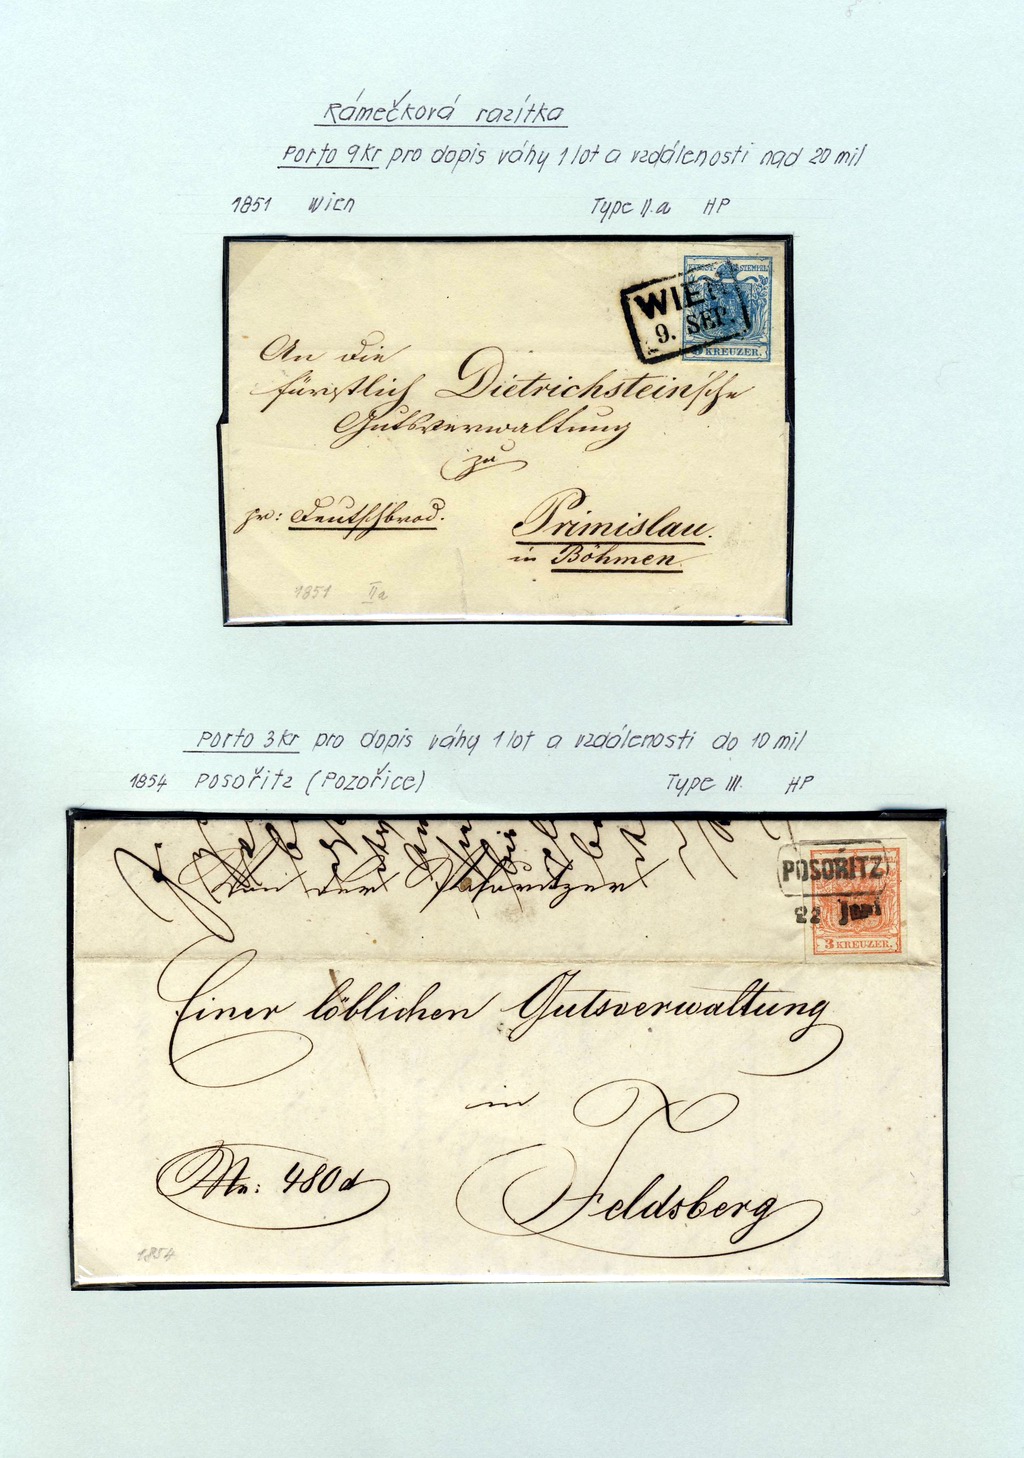 Rámečková razítka
Porto 9kr pro dopis váhy 1 lot a vzdálenosti nad 20 mil
1851 Wien Type II.a HP
WIEN
9. SEP.
KREUZER.
An die
fürstlich Dietrichstein'sche
Gutsverwaltung
zu
pr: Deutschbrod.
Primislau.
in Böhmen.
1851 IIa
Porto 3kr pro dopis váhy 1 lot a vzdálenosti do 10 mil
1854 Posořitz (Pozořice) Type III. HP
Von der Posoritzer
POSORITZ
22 Juni
3 KREUZER.
Einer löblichen Gutsverwaltung
in
Nr: 480d
Feldsberg
1854